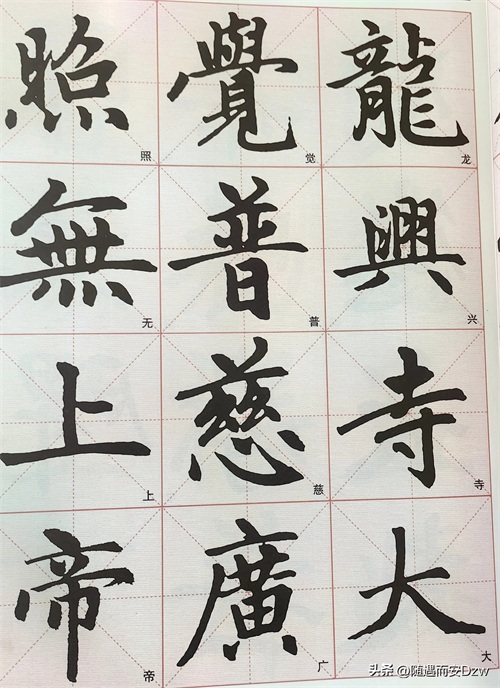 龍龙
興兴
寺寺
大大
覺觉
普普
慈慈
廣广
照照
無无
上上
帝帝
头条 @随遇而安Dzw